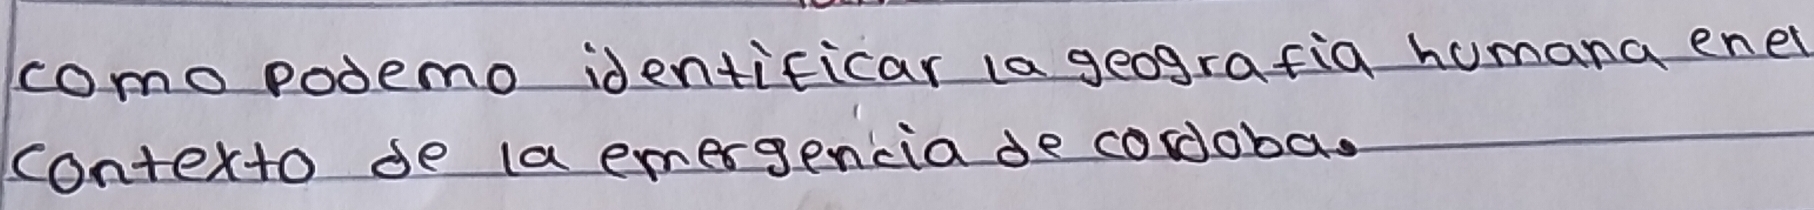 como podemo identificar la geografia humana enel
contexto de la emergencia de cordoba.